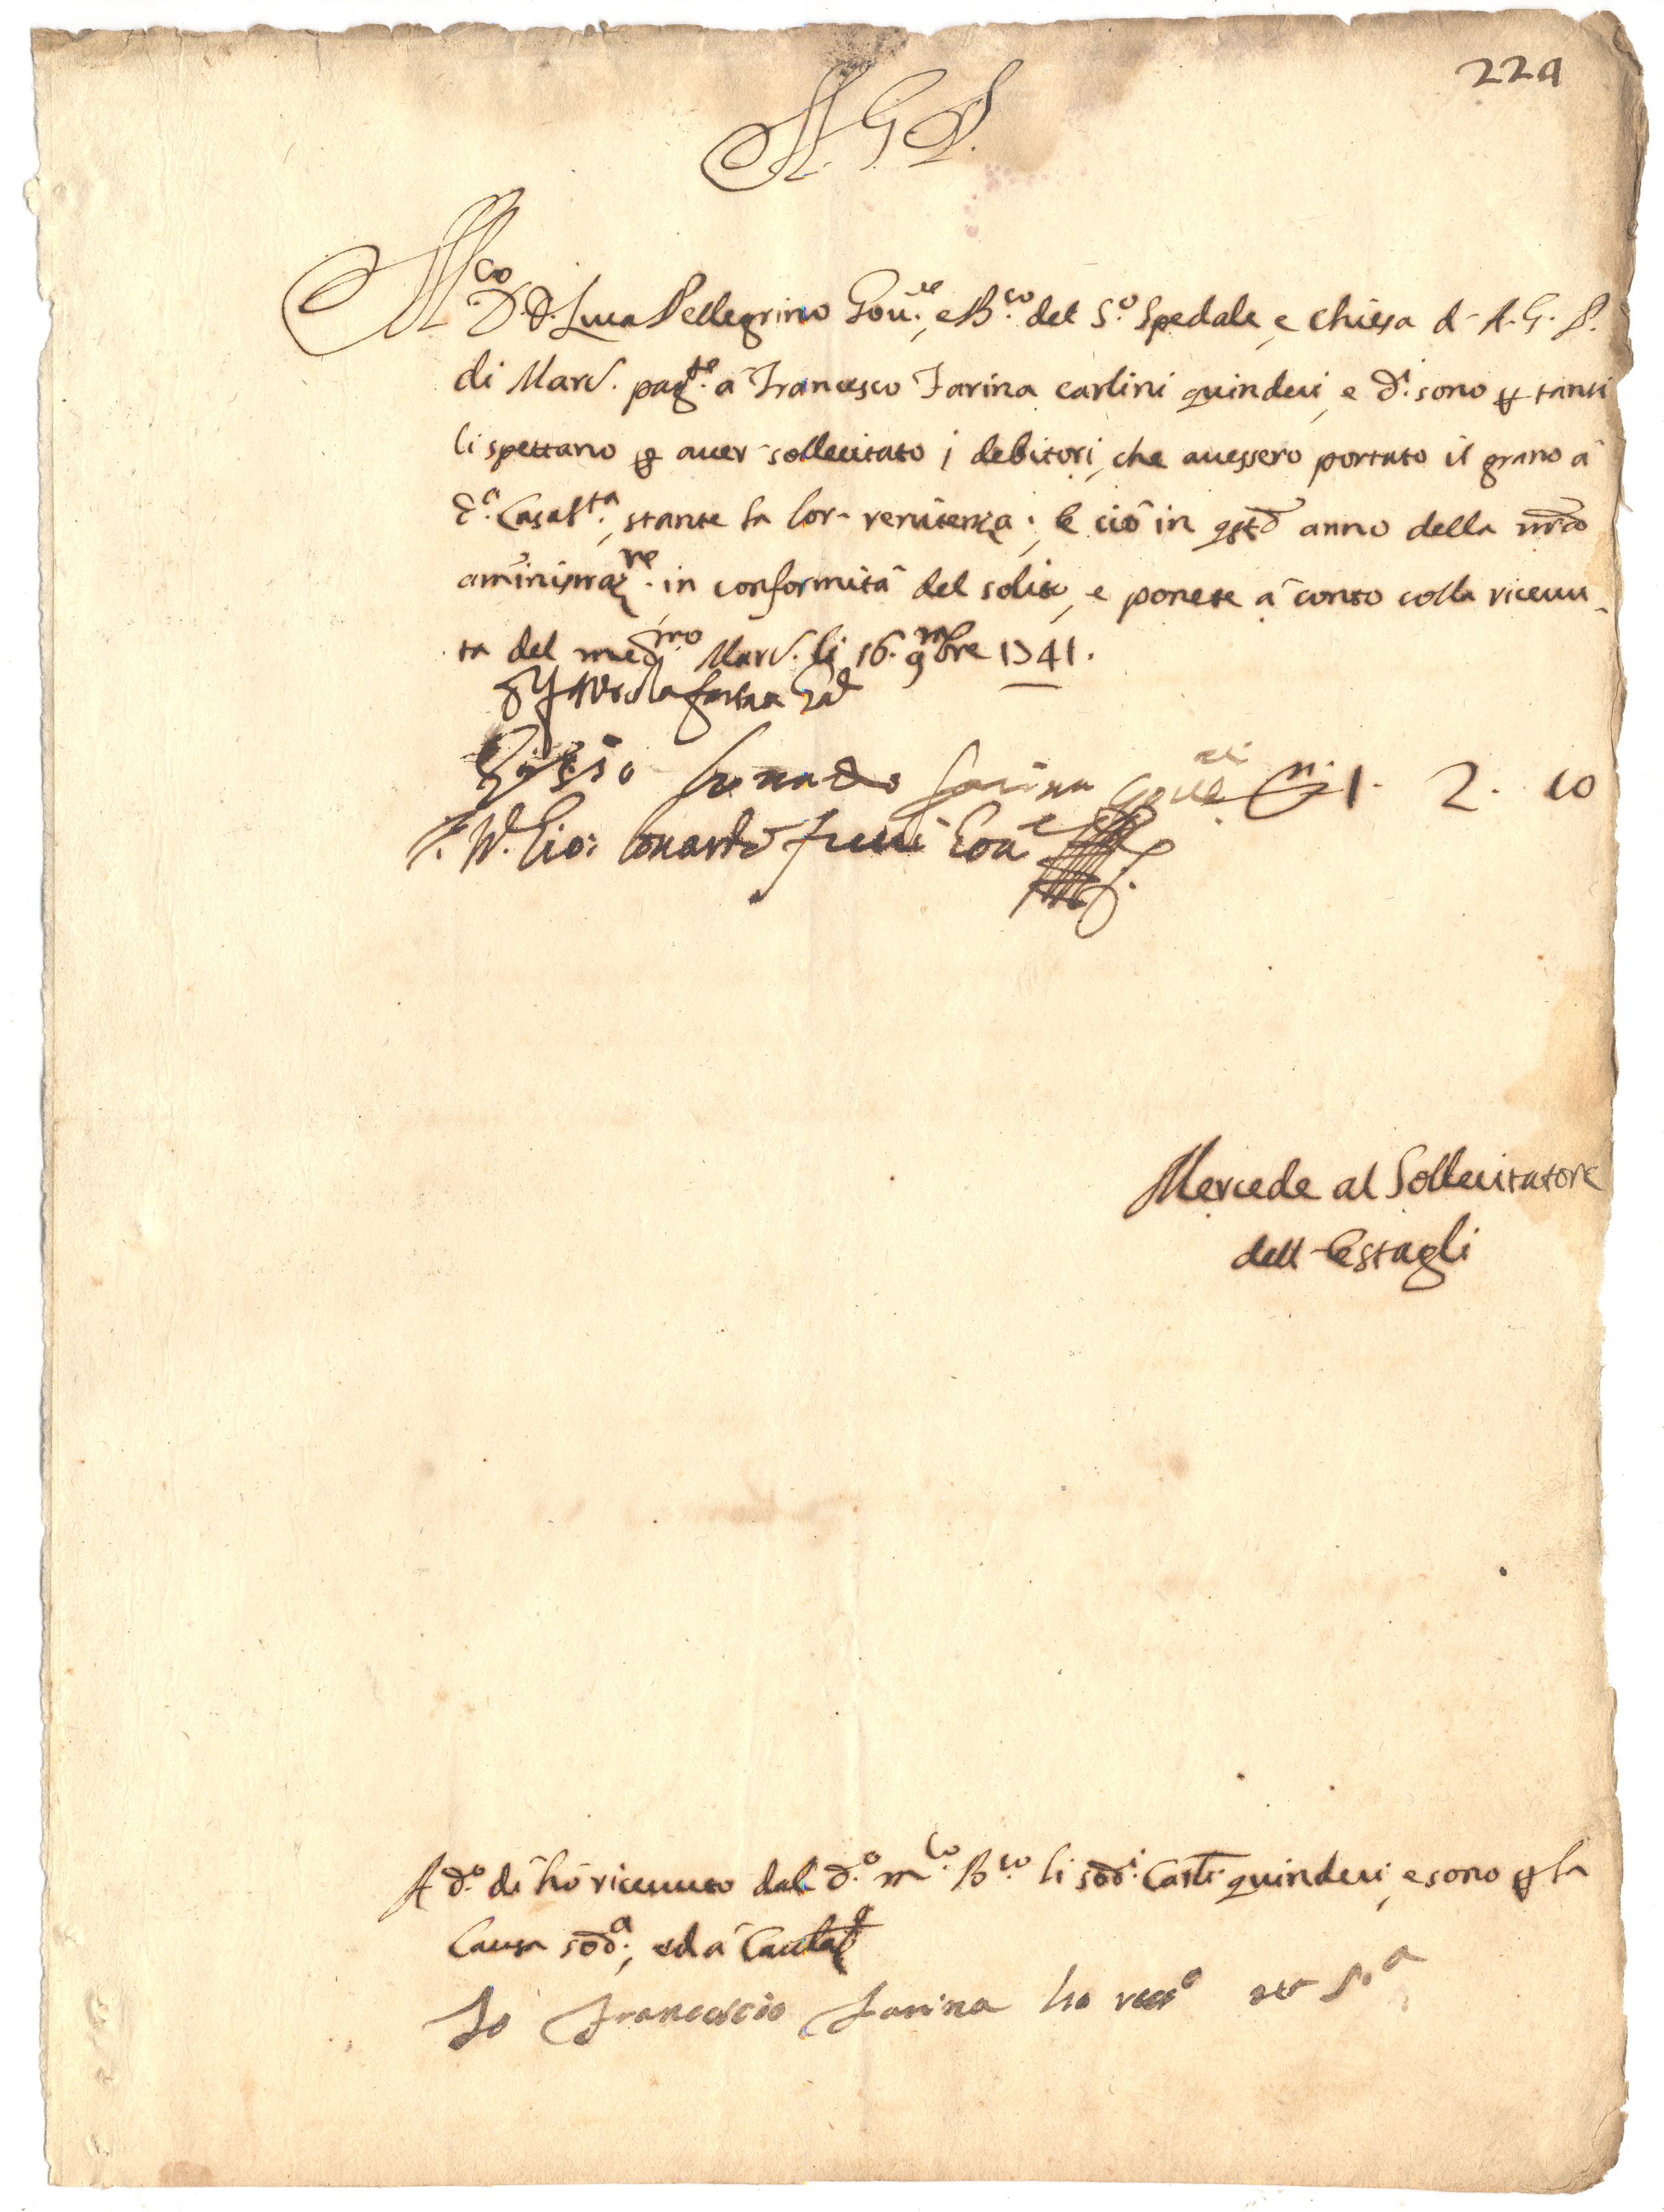 224
A. G. P.
M.co D. D. Luca Pellegrino Gou.re, e B.co del S.o Spedale, e Chiesa d- A. G. P.
di Marc. pag.te à Francesco Farina carlini quindeci, e d.i sono p tanti
li spettano p auer- sollecitato i debitori, che auessero portato il grano à
d.a Casas.ta, stante la lor- renitenza; e ciò in qsto anno della nra
aministraz.ne in conformità del solito, e ponete à conto colla riceuu-
ta del med.mo Marc. li 16. 9mbre 1741.
farina
lonardo farina 1. 2. 10
Gio: lonardo
Mercede al Sollecitatore
dell- Estagli
A d.o dì hò riceuuto dal d.o m.co B.co li sod.i Carli- quindeci, e sono p la
Causa sod.a, ed à Cautela
Io Francescio Farina ho rec.o